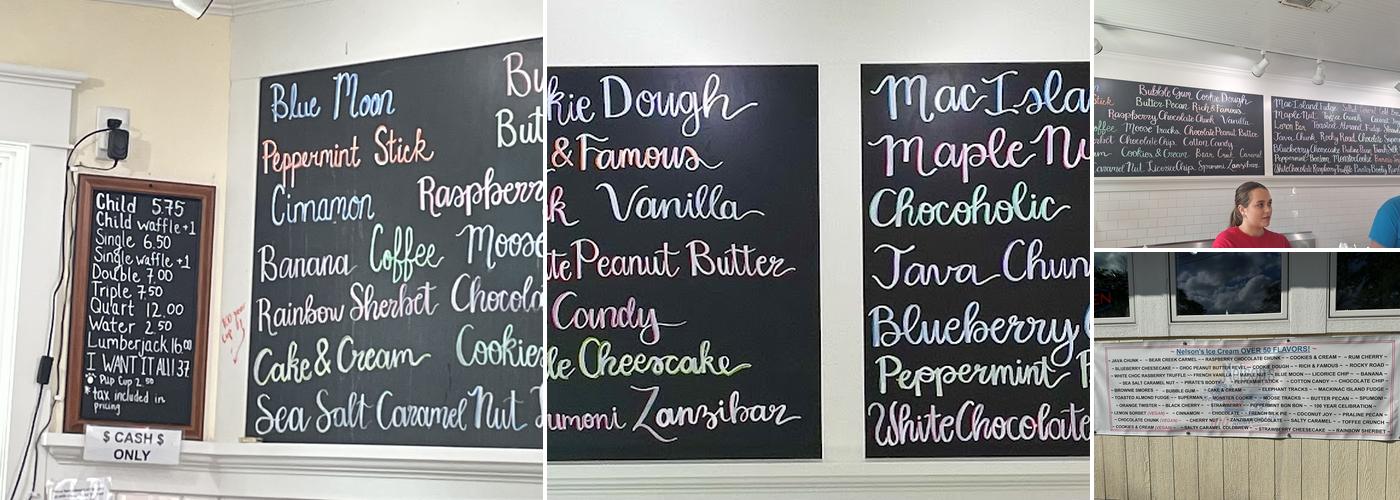 Child 5.75
Child waffle +1
Single 6.50
Single waffle +1
Double 7.00
Triple 7.50
Quart 12.00
Water 2.50
Lumberjack 16.00
I WANT IT ALL! 37.
Pup Cup 2.50
*tax included in
pricing
$ CASH $
ONLY
Blue Moon
Peppermint Stick
Cinnamon Raspberry
Banana Coffee Moose
Rainbow Sherbet Chocola
Cake & Cream Cookies
Sea Salt Caramel Nut
Bu
But
kie Dough
& Famous
k Vanilla
te Peanut Butter
Candy
le Cheesecake
umoni Zanzibar
Mac Isla
Maple Nu
Chocoholic
Java Chun
Blueberry C
Peppermint B
White Chocolate
Bubble Gum Cookie Dough
Butter Pecan Rich & Famous
Raspberry Chocolate Chunk Vanilla
Moose Tracks Chocolate Peanut Butter
Chocolate Chip Cotton Candy
Cookies & Cream Bear Creek Caramel
Caramel Nut Licorice Chip Spumoni Zanzibar
Mac Island Fudge
Maple Nut Toffee Crunch
Lemon
Java Chunk Rocky Road
Blueberry Cheesecake Praline Pecan
Peppermint Bonbon Monster Cookie
White Chocolate Raspberry Truffle
~ Nelson's Ice Cream OVER 50 FLAVORS! ~
JAVA CHUNK ~ BEAR CREEK CARMEL ~ RASPBERRY CHOCOLATE CHUNK ~ COOKIES & CREAM ~ RUM CHERRY
BLUEBERRY CHEESECAKE ~ CHOC PEANUT BUTTER REVEL ~ COOKIE DOUGH ~ RICH & FAMOUS ~ ROCKY ROAD
WHITE CHOC RASPBERRY TRUFFLE ~ FRENCH VANILLA ~ MAPLE NUT ~ BLUE MOON ~ LICORICE CHIP ~ BANANA
SEA SALT CARAMEL NUT ~ PIRATE'S BOOTY ~ PEPPERMINT STICK ~ COTTON CANDY ~ CHOCOLATE CHIP
BROWNIE SMORES ~ BUBBLE GUM ~ CAKE & CREAM ~ ELEPHANT TRACKS ~ MACKINAC ISLAND FUDGE
TOASTED ALMOND FUDGE ~ SUPERMAN ~ MONSTER COOKIE ~ MOOSE TRACKS ~ BUTTER PECAN ~ SPUMONI
ORANGE TWISTER ~ BLACK CHERRY ~ STRAWBERRY ~ PEPPERMINT BON BON ~ 100 YEAR CELIBRATION
LEMON SORBET (VEGAN) ~ CINNAMON ~ CHOCOLATE ~ FRENCH SILK PIE ~ COCONUT JOY ~ PRALINE PECAN
CHOCOLATE CHUNK (VEGAN) ~ CHERRY NUT ~ ZANZIBAR CHOCOLATE ~ SALTY CARAMEL ~ TOFFEE CRUNCH
COOKIES & CREAM (VEGAN) ~ SALTY CARAMEL COLDBREW ~ STRAWBERRY CHEESECAKE ~ RAINBOW SHERBET